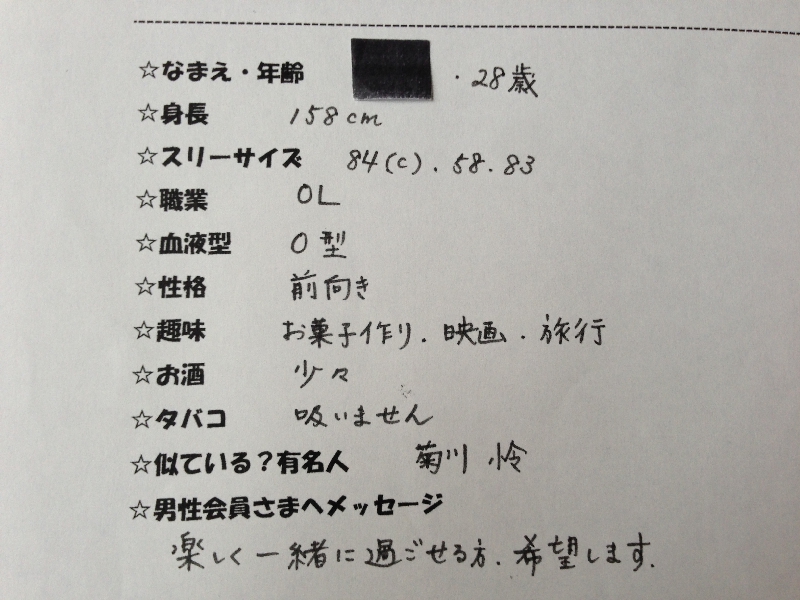 ☆なまえ・年齢 ・28歳
☆身長 158cm
☆スリーサイズ 84(C).58.83
☆職業 OL
☆血液型 O型
☆性格 前向き
☆趣味 お菓子作り.映画.旅行
☆お酒 少々
☆タバコ 吸いません
☆似ている？有名人 菊川怜
☆男性会員さまへメッセージ
楽しく一緒に過ごせる方.希望します.